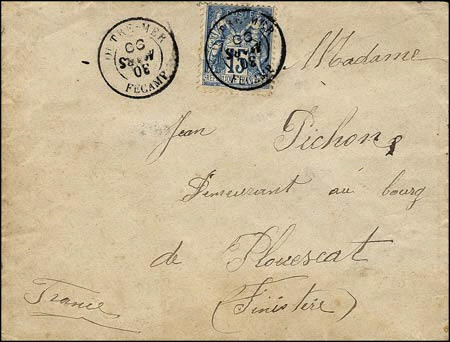 OUTRE-MER
90
30
MARS
FECAMP
15
FECAMP
Madame
Jean Pichon
Demeurant au bourg
de Plouescat
France
(Finistère)